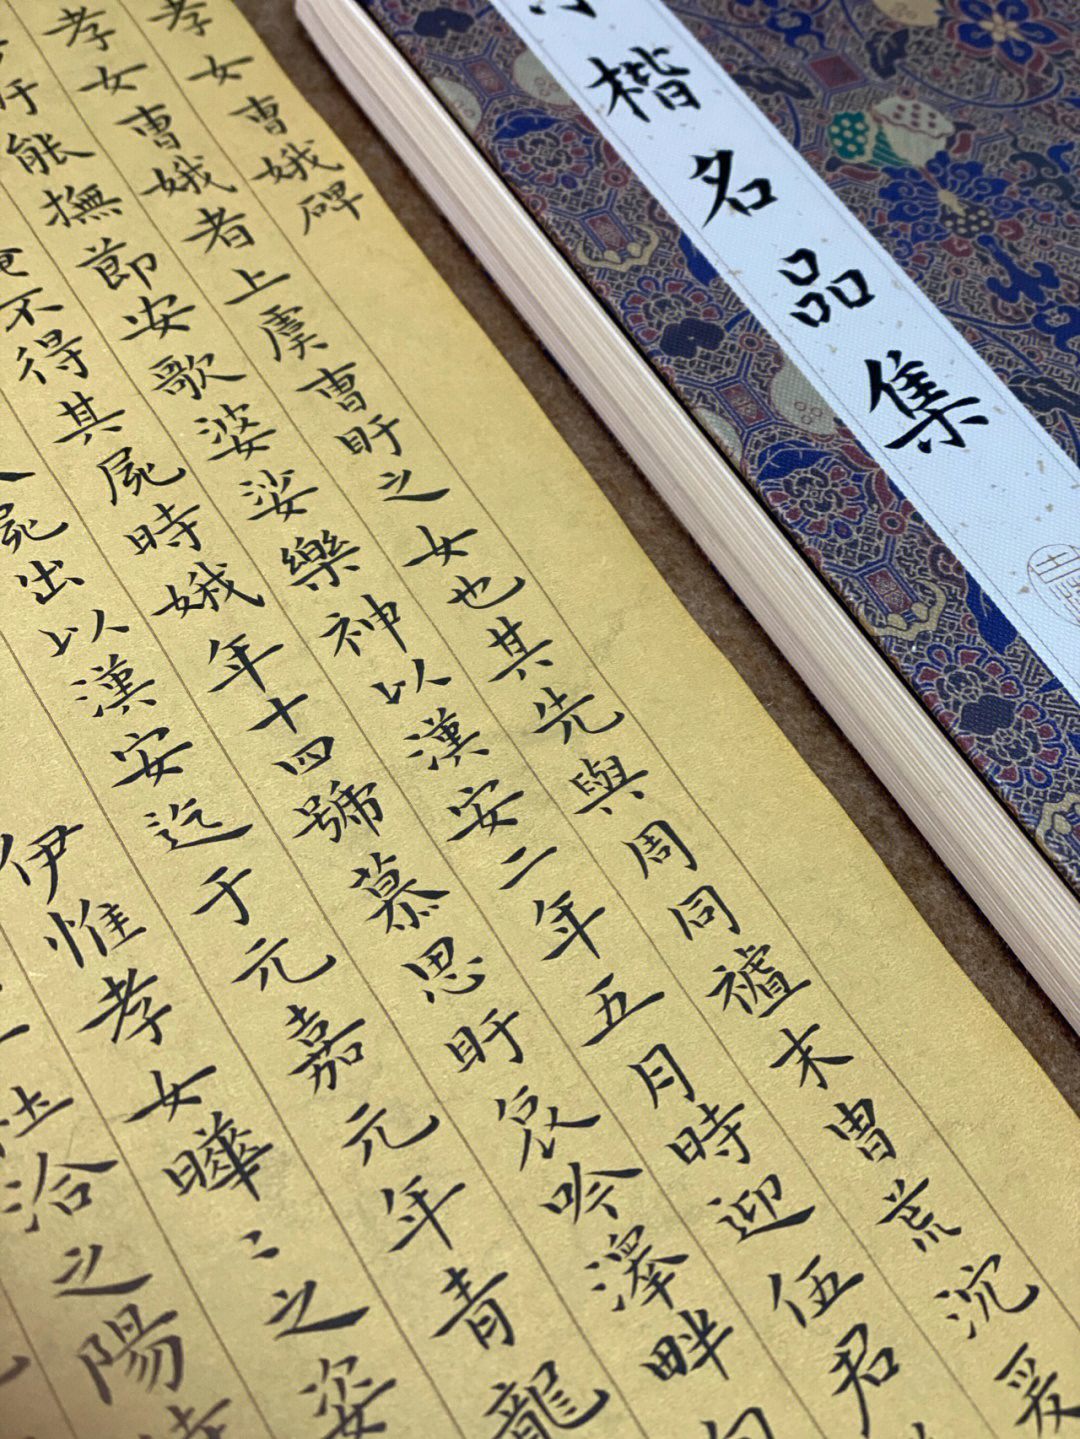 小楷名品集
孝女曹娥碑
孝女曹娥者上虞曹盱之女也其先與周同𥛜末胄荒沉爰
盱能撫節安歌婆娑樂神以漢安二年五月時迎伍君
不得其屍時娥年十四號慕思盱哀吟澤畔
屍出以漢安迄于元嘉元年青龍
伊惟孝女曄〻之姿
在洽之陽